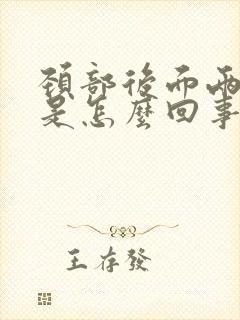 頸部後面兩
是怎麼回事
王存發